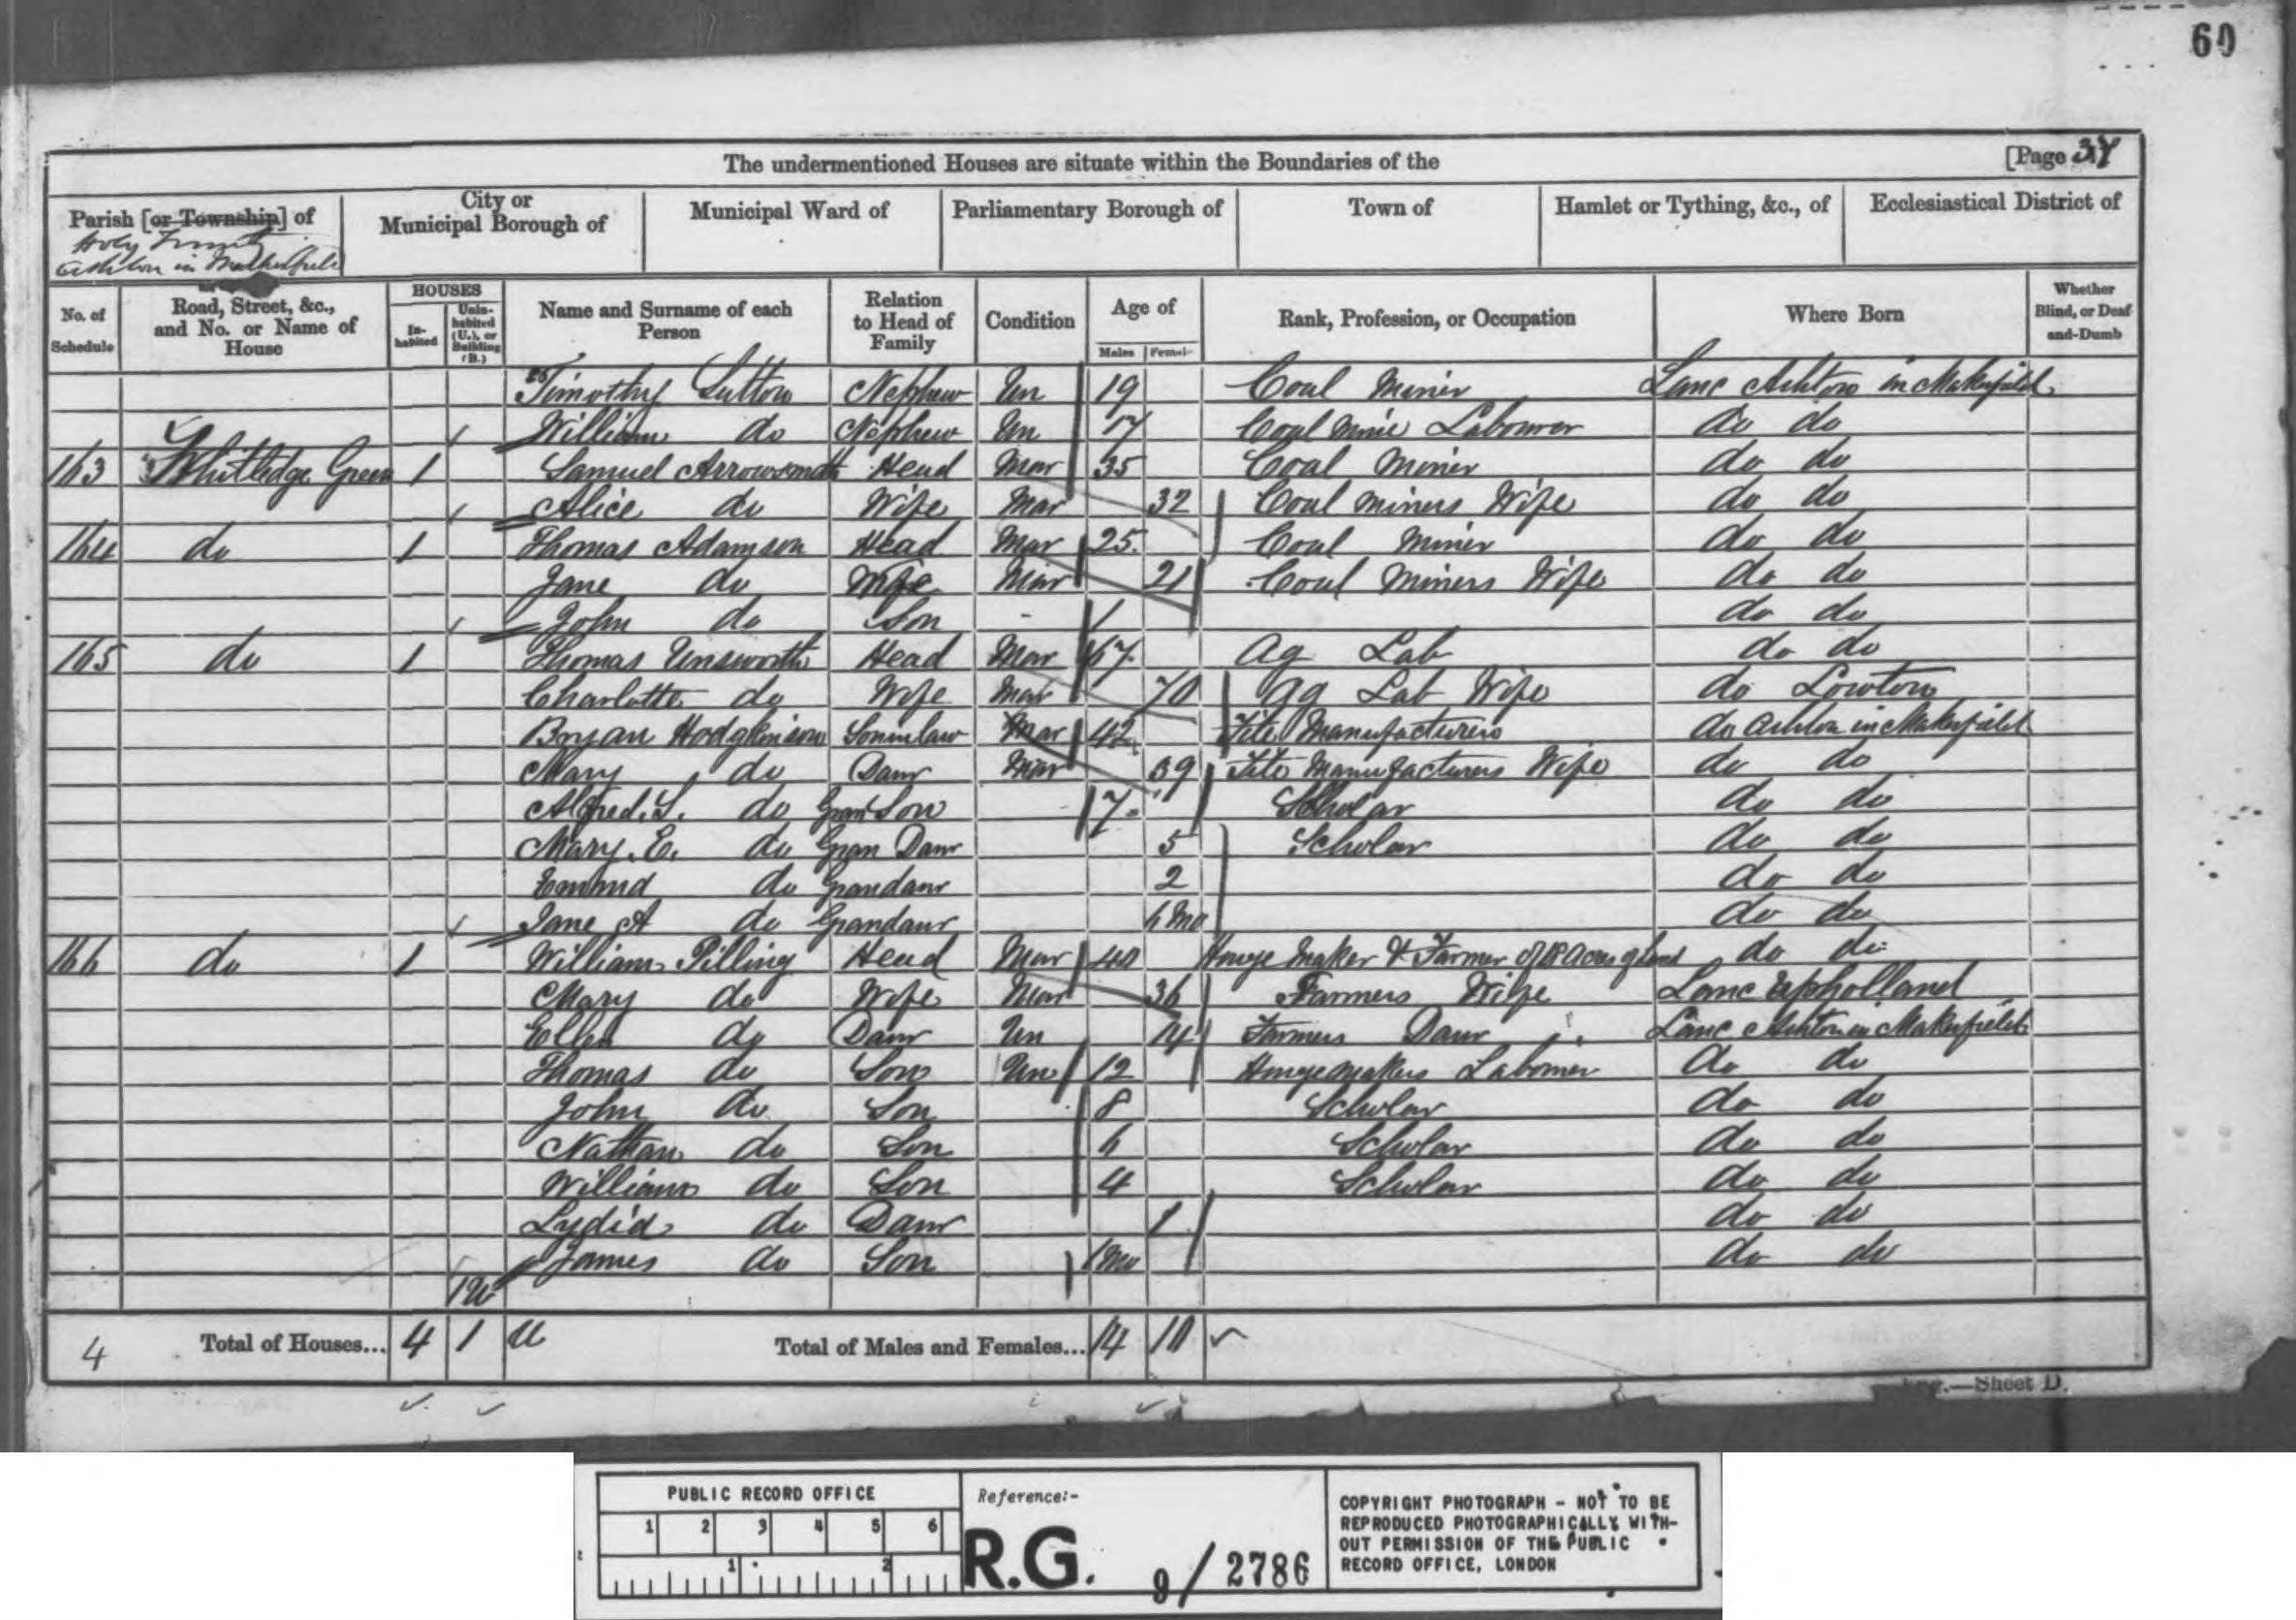 60
The undermentioned Houses are situate within the Boundaries of the [Page 37
Parish [or Township] of City or Municipal Borough of Municipal Ward of Parliamentary Borough of Town of Hamlet or Tything, &c., of Ecclesiastical District of
Holy Trinity
Ashton in Makerfield
No. of Schedule Road, Street, &c., and No. or Name of House HOUSES In-habited Unin-habited (U.), or Building (B.) Name and Surname of each Person Relation to Head of Family Condition Age of Males Females Rank, Profession, or Occupation Where Born Whether Blind, or Deaf-and-Dumb
Timothy Sutton Nephew Un 19 Coal Miner Lanc Ashton in Makerfield
William do Nephew Un 17 Coal Mine Labourer do do
163 Whitledge Green 1 Samuel Arrowsmith Head Mar 35 Coal Miner do do
Alice do Wife Mar 32 Coal Miners Wife do do
164 do 1 Thomas Adamson Head Mar 25 Coal Miner do do
Jane do Wife Mar 21 Coal Miners Wife do do
John do Son - 1 do do
165 do 1 Thomas Unsworth Head Mar 67 Ag Lab do do
Charlotte do Wife Mar 70 Ag Lab Wife do Lowton
Bryan Hodgkinson Soninlaw Mar 42 File Manufacturers do Ashton in Makerfield
Mary do Daur Mar 39 File Manufacturers Wife do do
Alfred. S. do Grand Son 7 Scholar do do
Mary. E. do Gran Daur 5 Scholar do do
Emma do Grandaur 2 do do
Jane A do Grandaur 6 Mo do do
166 do 1 William Pilling Head Mar 40 Hinge Maker & Farmer of 18 Acres of land do do
Mary do Wife Mar 36 Farmers Wife Lanc Upholland
Ellen do Daur Un 14 Farmers Daur Lanc Ashton in Makerfield
Thomas do Son Un 12 Hingemakers Labourer do do
John do Son 8 Scholar do do
Nathan do Son 6 Scholar do do
William do Son 4 Scholar do do
Lydia do Daur 1 do do
James do Son 1 Mo do do
1 U
4 Total of Houses... 4 1 U Total of Males and Females... 14 10
Eng.—Sheet D.
PUBLIC RECORD OFFICE
1 2 3 4 5 6
1 2
Reference:-
R.G. 9/2786
COPYRIGHT PHOTOGRAPH - NOT TO BE
REPRODUCED PHOTOGRAPHICALLY WITH-
OUT PERMISSION OF THE PUBLIC
RECORD OFFICE, LONDON